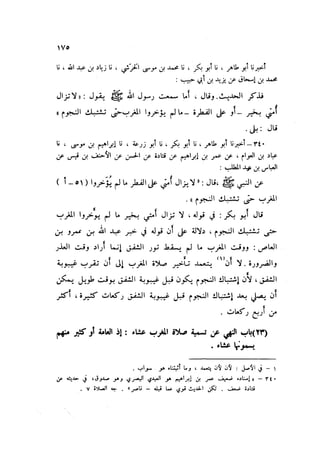 ١٧٥
أخبرنا أبو طاهر ، نا أبو بكر ، نا محمد بن موسى الحرشي ، نا زياد بن عبد الله ، نا
محمد بن إسحاق عن يزيد بن أبي حبيب :
فذكر الحديث. وقال ، أما سمعت رسول الله ﷺ يقول : « لا تزال
أمتي بخير – أو على الفطرة – ما لم يؤخروا المغرب حتى تشتبك النجوم »
قال : بلى .
٣٤٠ – أخبرنا أبو طاهر ، نا أبو بكر ، نا أبو زرعة ، نا إبراهيم بن موسى ، نا
عباد بن العوام ، عن عمر بن إبراهيم عن قتادة عن الحسن عن الأحنف بن قيس عن
العباس بن عبد المطلب :
عن النبي ﷺ ،قال: « لا يزال أمتي على الفطر ما لم يؤخروا (٥١ – أ )
المغرب حتى تشتبك النجوم » .
قال أبو بكر : في قوله ، لا تزال أمتي بخير ما لم يؤخروا المغرب
حتى تشتبك النجوم ، دلالة على أن قوله في خبر عبد الله بن عمرو بن
العاص : ووقت المغرب ما لم يسقط ثور الشفق إنما أراد وقت العذر
والضرورة . لا أن(١) يتعمد تأخير صلاة المغرب إلى أن تقرب غيبوبة
الشفق ، لأن إشتباك النجوم يكون قبل غيبوبة الشفق بوقت طويل يمكن
أن يصلي بعد إشتباك النجوم قبل غيبوبة الشفق ركعات كثيرة ، أكثر
من أربع ركعات .
(٢٣) باب النهي عن تسمية صلاة المغرب عشاء : إذ العامة أو كثير منهم
يسمونها عشاء .
١ – في الأصل : لأن لأن يتعمد ، وما أثبتناه هو سواب .
٣٤٠ – « إسناده ضعيف عمر بن إبراهيم هو العبدي البصري وهو صدوق، في حديثه عن
قتادة ضعف . لكن الحديث قوي بما قبله – ناصر» . جه الصلاة ٧ .